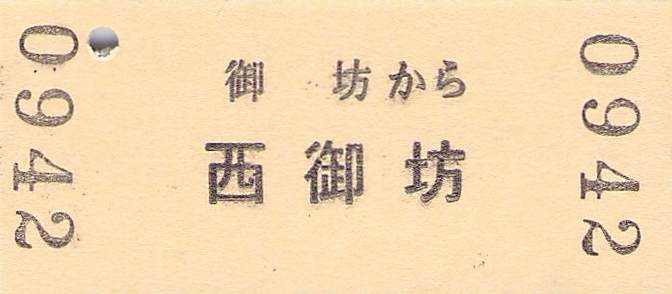 0942
御 坊から
西御坊
0942